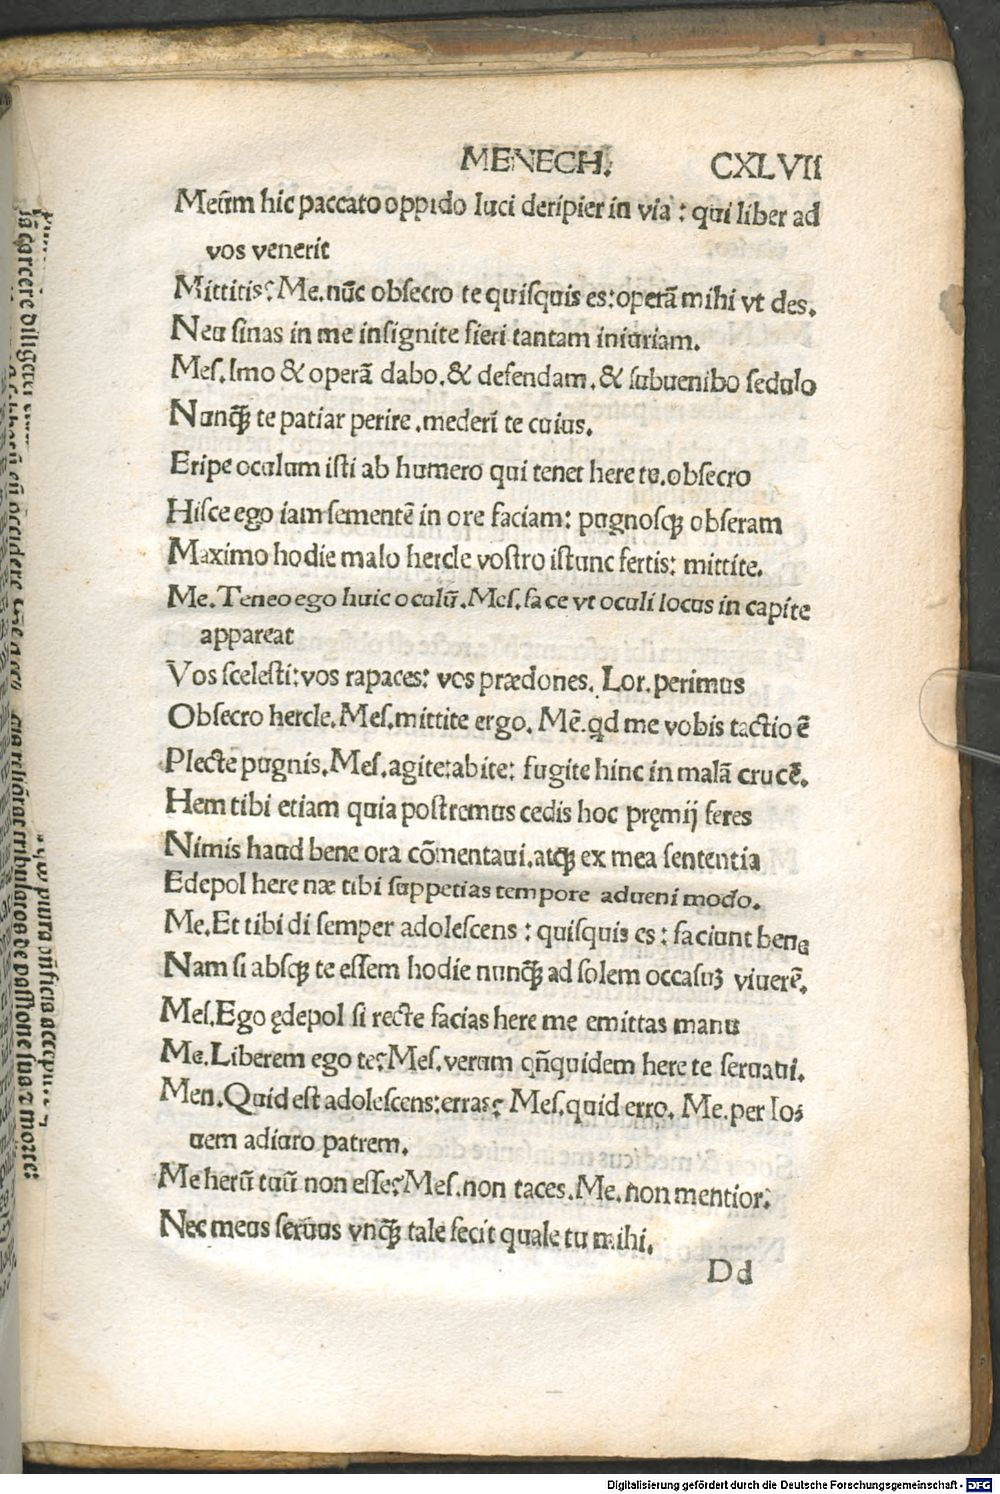 MENECH. CXLVII
Meũm hic paccato oppido luci deripier in via : qui liber ad
vos venerit
Mittitis? Me. nũc obsecro te quisquis es: operã mihi vt des.
Neu sinas in me insignite fieri tantam iniuriam.
Mes. Imo & operã dabo. & defendam. & subuenibo sedulo
Nunq̃ te patiar perire. mederi te cuius.
Eripe oculum isti ab humero qui tenet here tu. obsecro
Hisce ego iam sementẽ in ore faciam: pugnosq; obseram
Maximo hodie malo hercle vostro istunc fertis: mittite.
Me. Teneo ego huic oculũ. Mes. face vt oculi locus in capite
appareat
Vos scelesti: vos rapaces: vos prædones. Lor. perimus
Obsecro hercle. Mes. mittite ergo. Mẽ. qd me vobis tactio ẽ
Plectẽ pugnis. Mes. agite: abite: fugite hinc in malã crucẽ.
Hem tibi etiam quia postremus cedis hoc pręmij feres
Nimis haud bene ora cõmentaui. atq; ex mea sententia
Edepol here næ tibi suppetias tempore adueni modo.
Me. Et tibi di semper adolescens : quisquis es : faciunt bene
Nam si absq; te essem hodie nunq̃ ad solem occasuʒ viuerẽ.
Mes. Ego ędepol si recte facias here me emittas manu
Me. Liberem ego te? Mes. verum qñquidem here te seruaui.
Men. Quid est adolescens: erras? Mes. quid erro. Me. per Io⸗
uem adiuro patrem.
Me herũ tuũ non esse? Mes. non taces. Me. non mentior.
Nec meus seruus vnq̃ tale fecit quale tu mihi.
Dd
ia carcere diligati
de passione sua & morte:
Digitalisierung gefördert durch die Deutsche Forschungsgemeinschaft - DFG